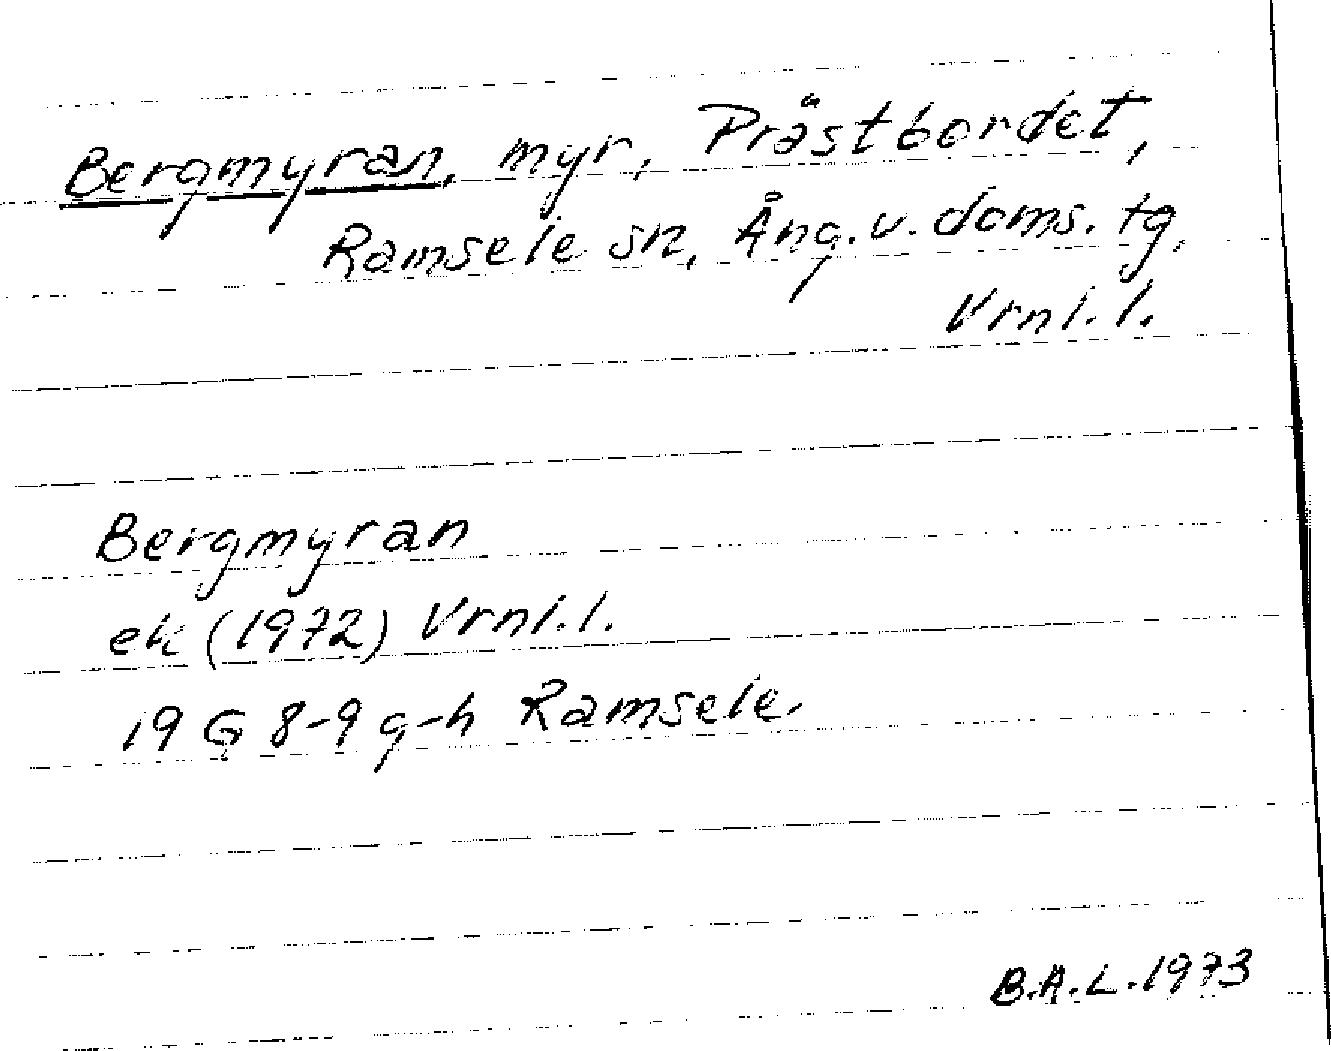 Bergmyran, myr, Prästbordet,
Ramsele sn, Ång. v. doms. tg,
Vrnl. l.
Bergmyran
ek (1972) Vrnl. l.
19 G 8-9 g-h Ramsele.
B.A.L. 1973